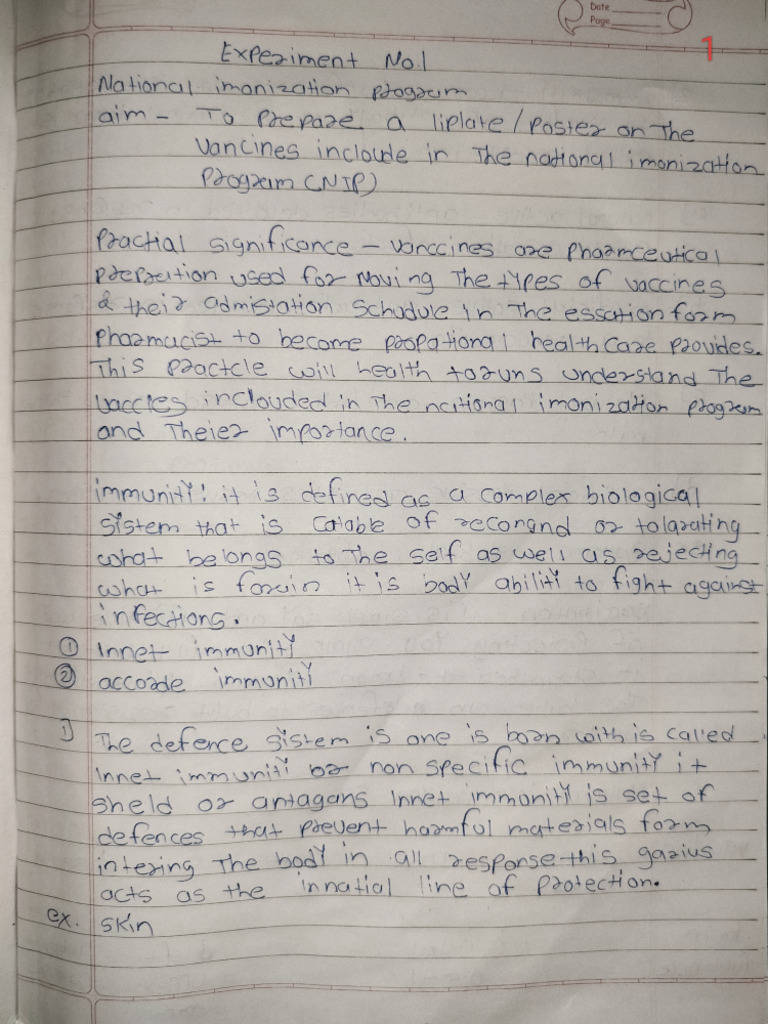 Date
Page
1
Experiment No.1
National imonization program
aim - To prepare a liplate/Poster on The
Vancines incloude in The national imonization
Program (NIP)
Practial significance - vanccines are Pharmceutical
prepration used for Noving The types of vaccines
& their admistation Schudule in The essation form
Pharmacist to become propational health Care provides.
This practcle will health toruns understand The
vaccies inclouded in The national imonization program
and Theier importance.
immunity: it is defined as a complex biological
sistem that is Calable of recongnd or tolarating
what belongs to The self as well as rejecting
what is forein it is body ability to fight against
infections.
① Innet immunity
② accorde immuniti
1) The defence sistem is one is born with is called
Innet immuniti or non specific immunity it
sheld or antagans Innet immunity is set of
defences that prevent harmful materials form
intering The body in all response this garius
acts as the innatial line of Protection.
ex. skin